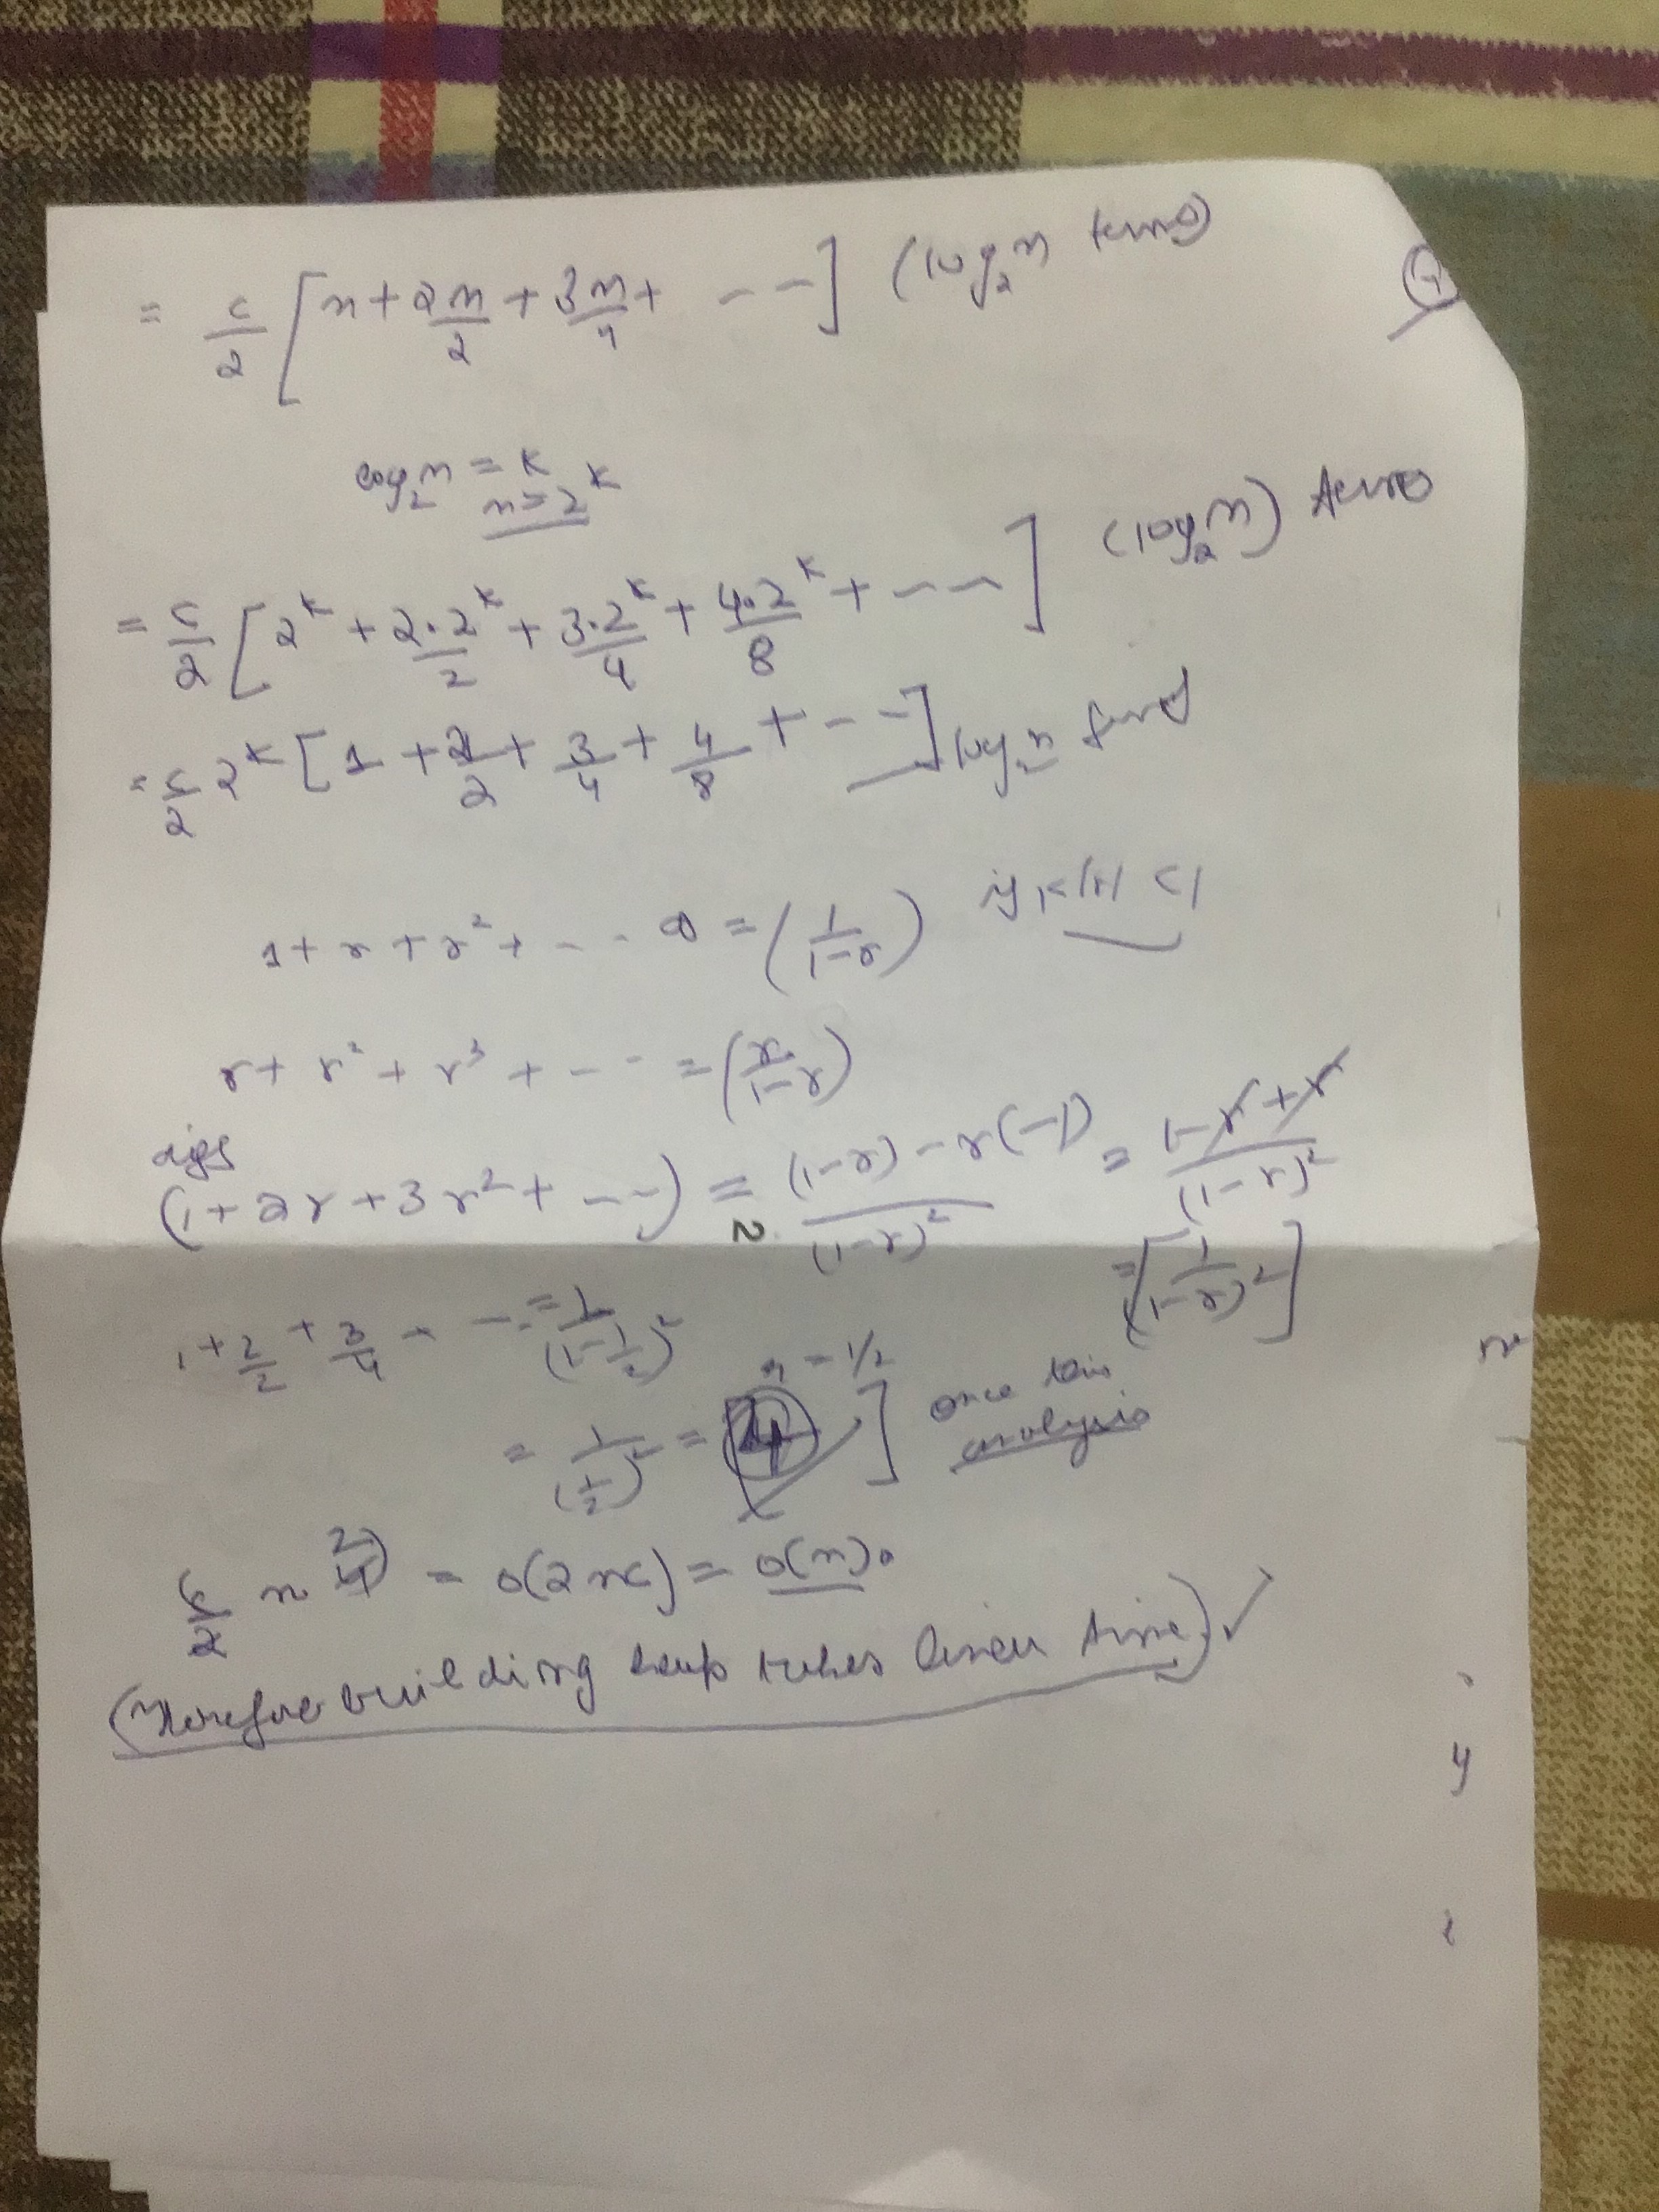 = c/2 [n + 2n/2 + 3n/4 + - - -] (log₂n terms)
log₂n = k
n = 2^k
= c/2 [2^k + 2·2^k/2 + 3·2^k/4 + 4·2^k/8 + - - -] (log₂n) terms
= c/2 2^k [1 + 2/2 + 3/4 + 4/8 + - - -] log₂n terms
1 + r + r² + - - - ∞ = (1/(1-r)) if |r| < 1
r + r² + r³ + - - - = (r/(1-r))
(1 + 2r + 3r² + - - -) = ((1-r) - r(-1))/(1-r)² = (1-r+r)/(1-r)²
= [1/(1-r)²]
1 + 2/2 + 3/4 - - - = 1/(1-1/2)²
r = 1/2
= 1/(1/2)² = 4 ] once this analysis
c/2 n 4 = O(2nc) = O(n).
(Therefore building heap takes linear time) ✓